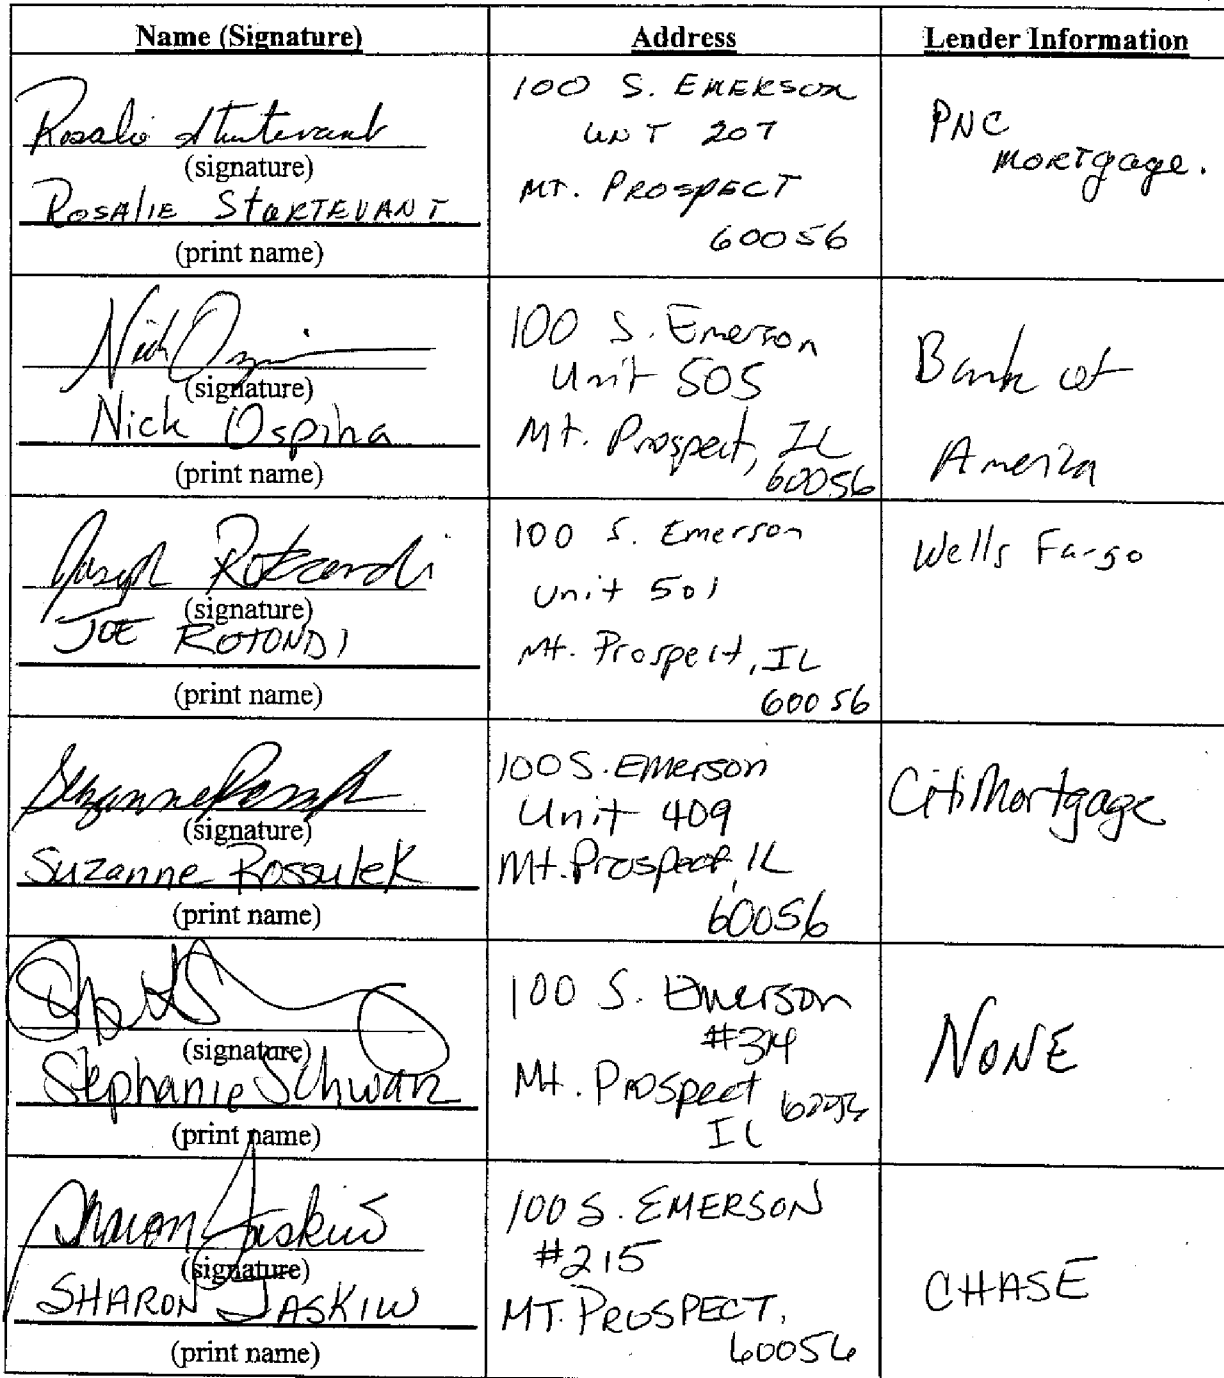 Name (Signature)
Address
Lender Information
Rosalie Sturtevant
(signature)
ROSALIE STURTEVANT
(print name)
100 S. EMERSON
UNT 207
MT. PROSPECT
60056
PNC
MORTgage.
Nick
(signature)
Nick Ospina
(print name)
100 S. Emerson
Unit 505
Mt. Prospect, IL
60056
Bank of
America
Joseph Rotondi
(signature)
JOE ROTONDI
(print name)
100 S. Emerson
Unit 501
Mt. Prospect, IL
60056
Wells Fargo
Suzanne
(signature)
Suzanne Rossulek
(print name)
100 S. Emerson
Unit 409
Mt. Prospect, IL
60056
CitiMortgage
(signature)
Stephanie Schwarz
(print name)
100 S. Emerson
#314
Mt. Prospect
IL
NONE
Sharon Jaskiw
(signature)
SHARON JASKIW
(print name)
100 S. EMERSON
#215
MT. PROSPECT,
60056
CHASE